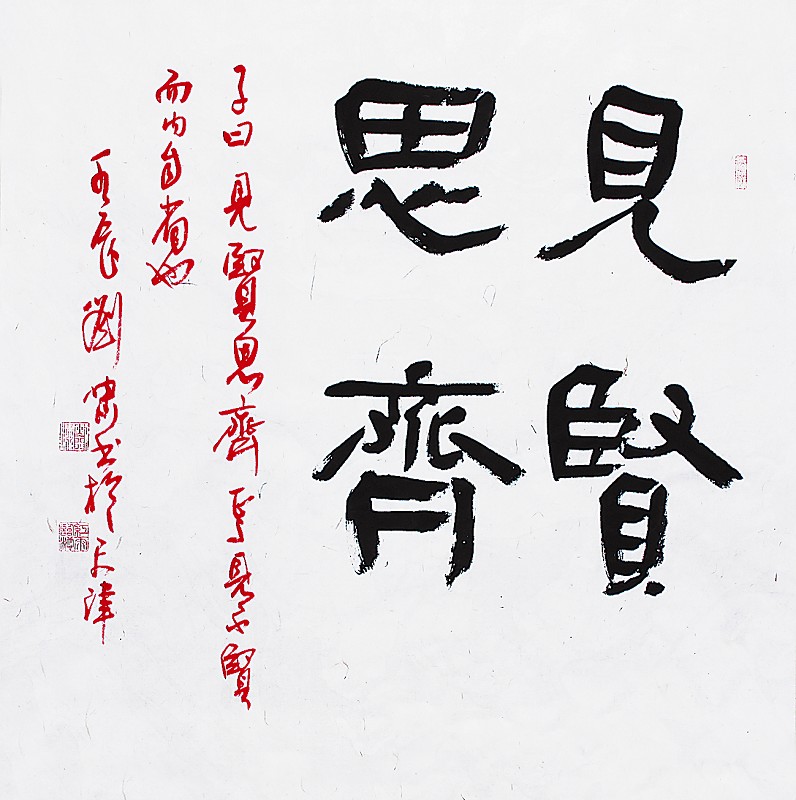 見賢
思齊
子曰見賢思齊焉見不賢
而內自省也
壬辰劉書於天津